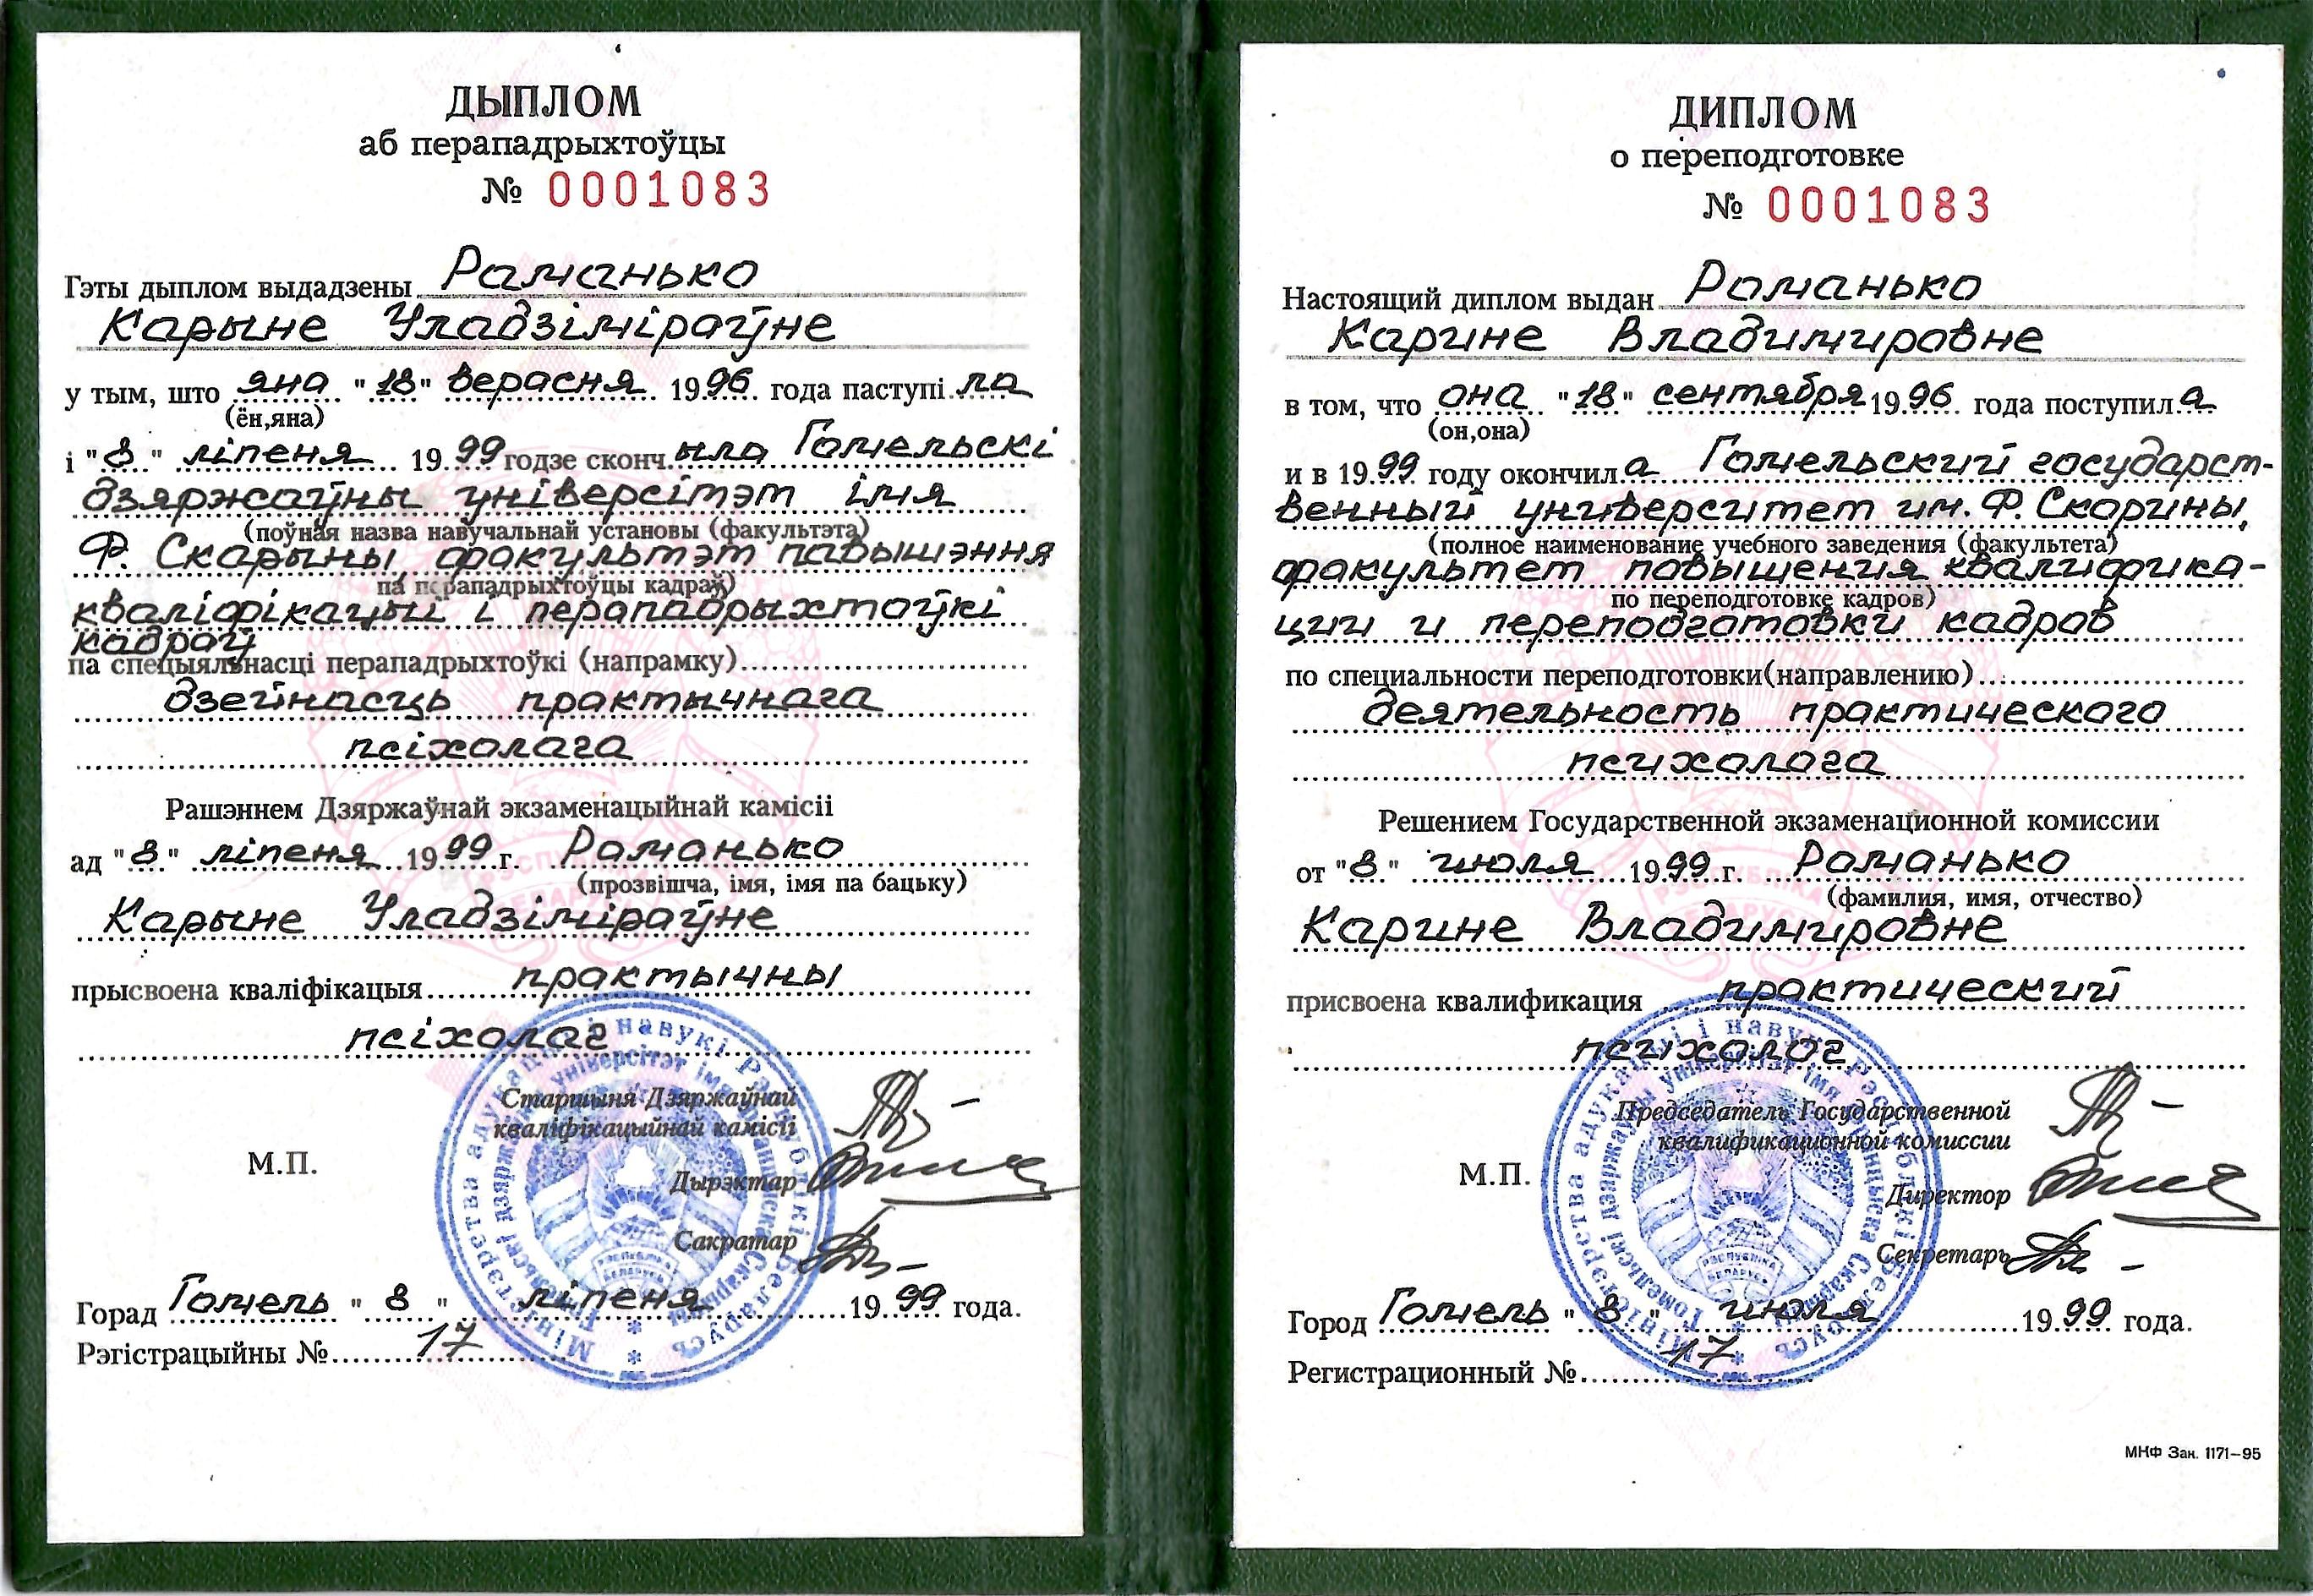 ДЫПЛОМ
аб перападрыхтоўцы
№ 0001083
Гэты дыплом выдадзены Раманько
Карыне Уладзіміраўне
у тым, што яна "18" верасня 1996 года паступіла
(ён,яна)
і "8" ліпеня 1999 годзе скончыла Гомельскі
дзяржаўны універсітэт імя
(поўная назва навучальнай установы (факультэта)
Ф. Скарыны, факультэт павышэння
па перападрыхтоўцы кадраў)
кваліфікацыі і перападрыхтоўкі
кадраў
па спецыяльнасці перападрыхтоўкі (напрамку)
дзейнасць практычнага
псіхолага
Рашэннем Дзяржаўнай экзаменацыйнай камісіі
ад "8" ліпеня 1999 г. Раманько
(прозвішча, імя, імя па бацьку)
Карыне Уладзіміраўне
прысвоена кваліфікацыя практычны
псіхолаг
Старшыня Дзяржаўнай
кваліфікацыйнай камісіі
М.П.
Дырэктар
Сакратар
Горад Гомель "8" ліпеня 1999 года.
Рэгістрацыйны № 17
Міністэрства адукацыі і навукі Рэспублікі Беларусь
Гомельскі дзяржаўны універсітэт імя Францыска Скарыны
РЭСПУБЛІКА
БЕЛАРУСЬ
ДИПЛОМ
о переподготовке
№ 0001083
Настоящий диплом выдан Романько
Карине Владимировне
в том, что она "18" сентября 1996 года поступила
(он,она)
и в 1999 году окончила Гомельский государст-
венный университет им. Ф. Скорины,
(полное наименование учебного заведения (факультета)
факультет повышения квалифика-
по переподготовке кадров)
ции и переподготовки кадров
по специальности переподготовки(направлению)
деятельность практического
психолога
Решением Государственной экзаменационной комиссии
от "8" июля 1999 г. Романько
(фамилия, имя, отчество)
Карине Владимировне
присвоена квалификация практический
психолог
Председатель Государственной
квалификационной комиссии
М.П.
Директор
Секретарь
Город Гомель "8" июля 1999 года.
Регистрационный № 17
Міністэрства адукацыі і навукі Рэспублікі Беларусь
Гомельскі дзяржаўны універсітэт імя Францыска Скарыны
РЭСПУБЛІКА
БЕЛАРУСЬ
МНФ Зак. 1171—95